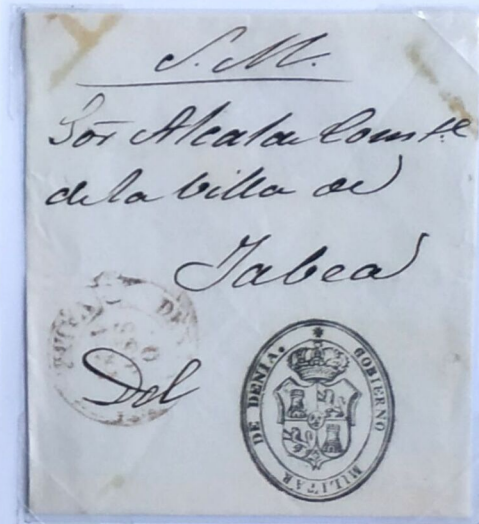 S. M.
Sor Alcalde Consl
de la Villa de
Jabea
Del
GOBIERNO MILITAR DE DENIA.